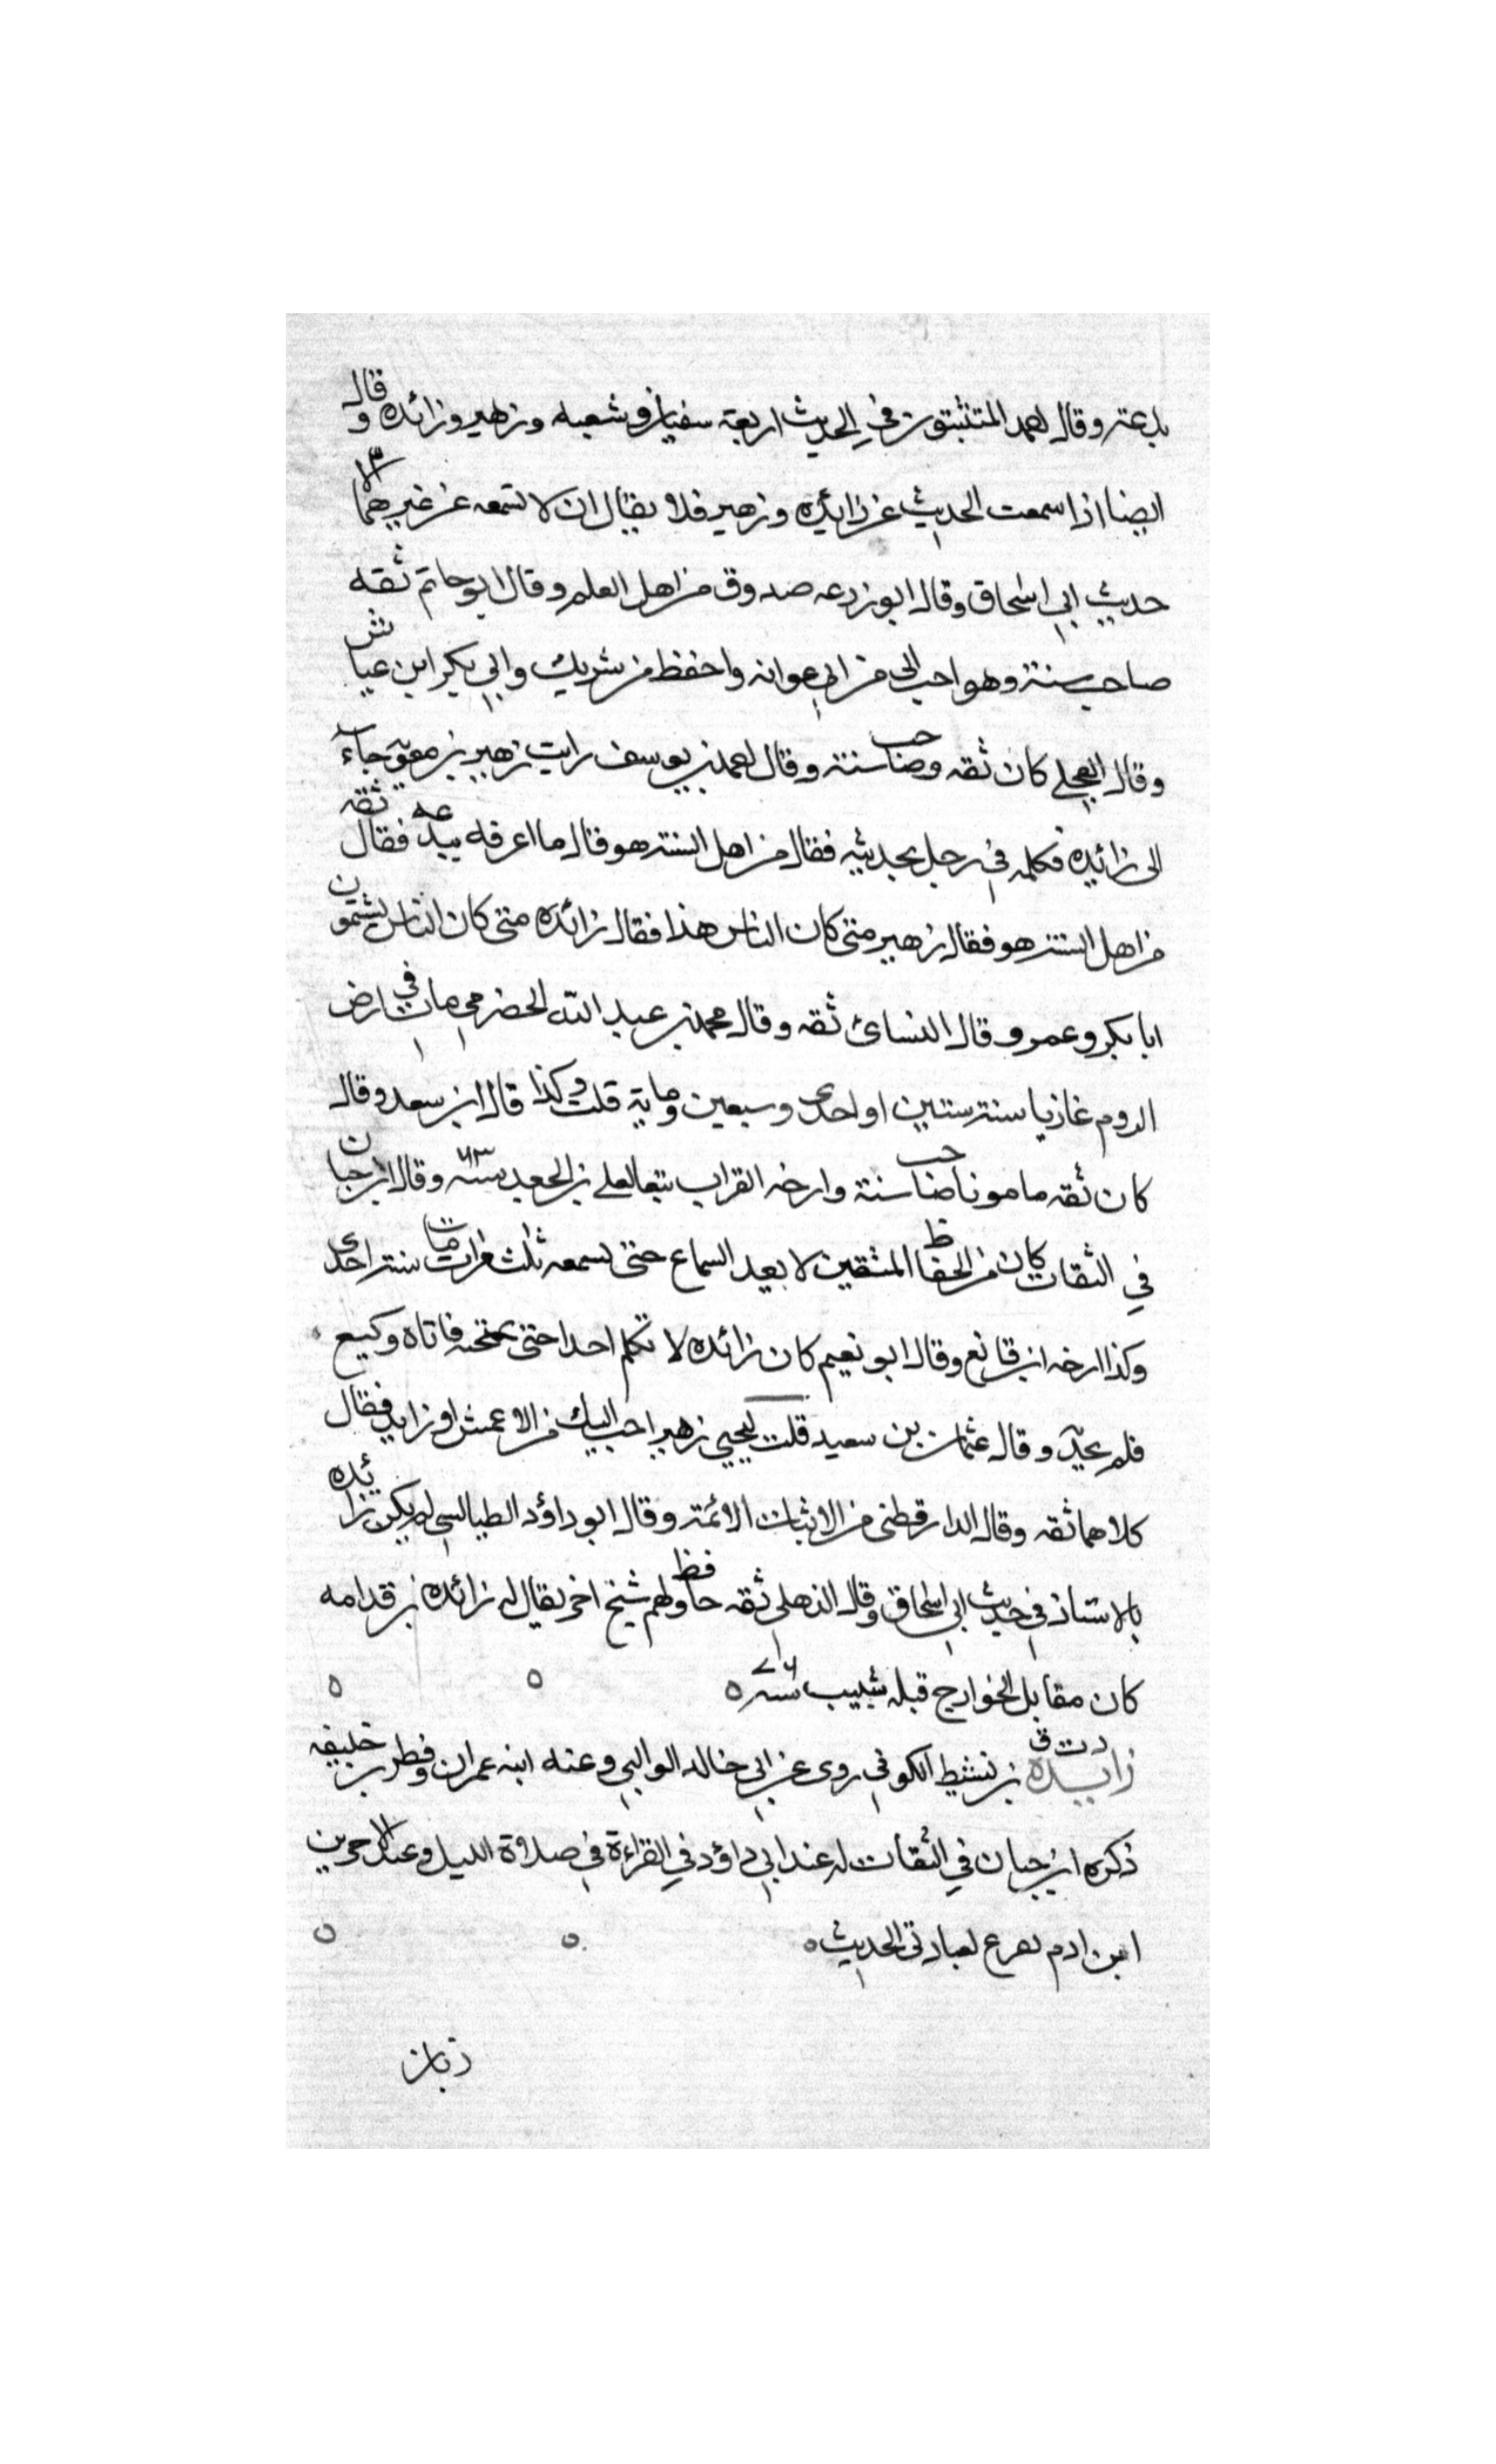 بدعته وقال احمد المتثبتون في الحديث اربعة سفيان وشعبه وزهير وزائده وقال
ايضا اذا سمعت الحديث عن زائده وزهير فلا تبال ان لا تسمعه عن غيرهما الا
حديث ابي اسحاق وقال ابو زرعه صدوق من اهل العلم وقال ابو حاتم ثقه
صاحب سنة وهو احب الى من ابي عوانه واحفظ من شريك وابي بكر ابن عياش
وقال العجلي كان ثقه وصاحب سنة وقال احمد بن يوسف رايت زهير بن معوية جاء
الى زائده فكلمه في رجل يحدثه فقال من اهل السنة هو قال ما اعرفه ببدعه فقال ثقه
من اهل السنة هو فقال زهير متى كان الناس هذا فقال زائده متى كان الناس يشتمون
ابا بكر وعمر وقال النسائ ثقه وقال محمد بن عبد الله الحضرمي مات في ارض
الروم غازيا سنة ستين او احدى وسبعين وماية قلت وكذا قال ابن سعد وقال
كان ثقه مامونا صاحب سنة وارخه القراب تبعا لعلي بن الجعد سنة ٦٣ وقال ابن حبان
في الثقات كان من الحفاظ المتقنين لا يعيد السماع حتى يسمعه ثلاث مرات مات سنة احدى
وكذا ارخه ابن قانع وقال ابو نعيم كان زائده لا تكلم احدا حتى يمتحنه فاتاه وكيع
فلم يحدثه وقال عثمان بن سعيد قلت ليحيي زهير احب اليك من الاعمش او زايده فقال
كلاهما ثقه وقال الدارقطني من الاثبات الائمة وقال ابو داؤد الطيالسي لم يكن زائده
بالاستاذ في حديث ابي اسحاق وقال الذهلي ثقه حافظ ولهم شيخ اخر يقال له زائده بن قدامه
كان مقابل الخوارج قبله شبيب سنة ٧٦ ه
د ت ق زايده بن نشيط الكوفي روى عن ابي خالد الوالبي وعنه ابنه عمران وفطر بن خليفه
ذكره ابن حبان في الثقات له عند ابي داؤد في القراءة في صلاة الليل وعند الاخرين
ابن ادم تفرع لعبادتي الحديث ه
زبان